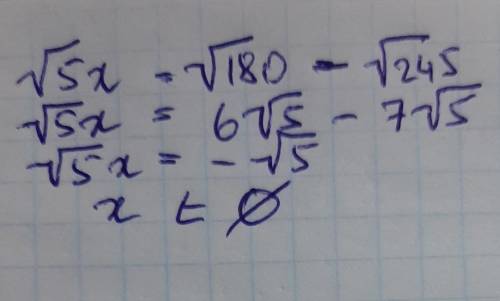 √5x = √180 - √245
√5x = 6√5 - 7√5
√5x = -√5
x ∈ ∅